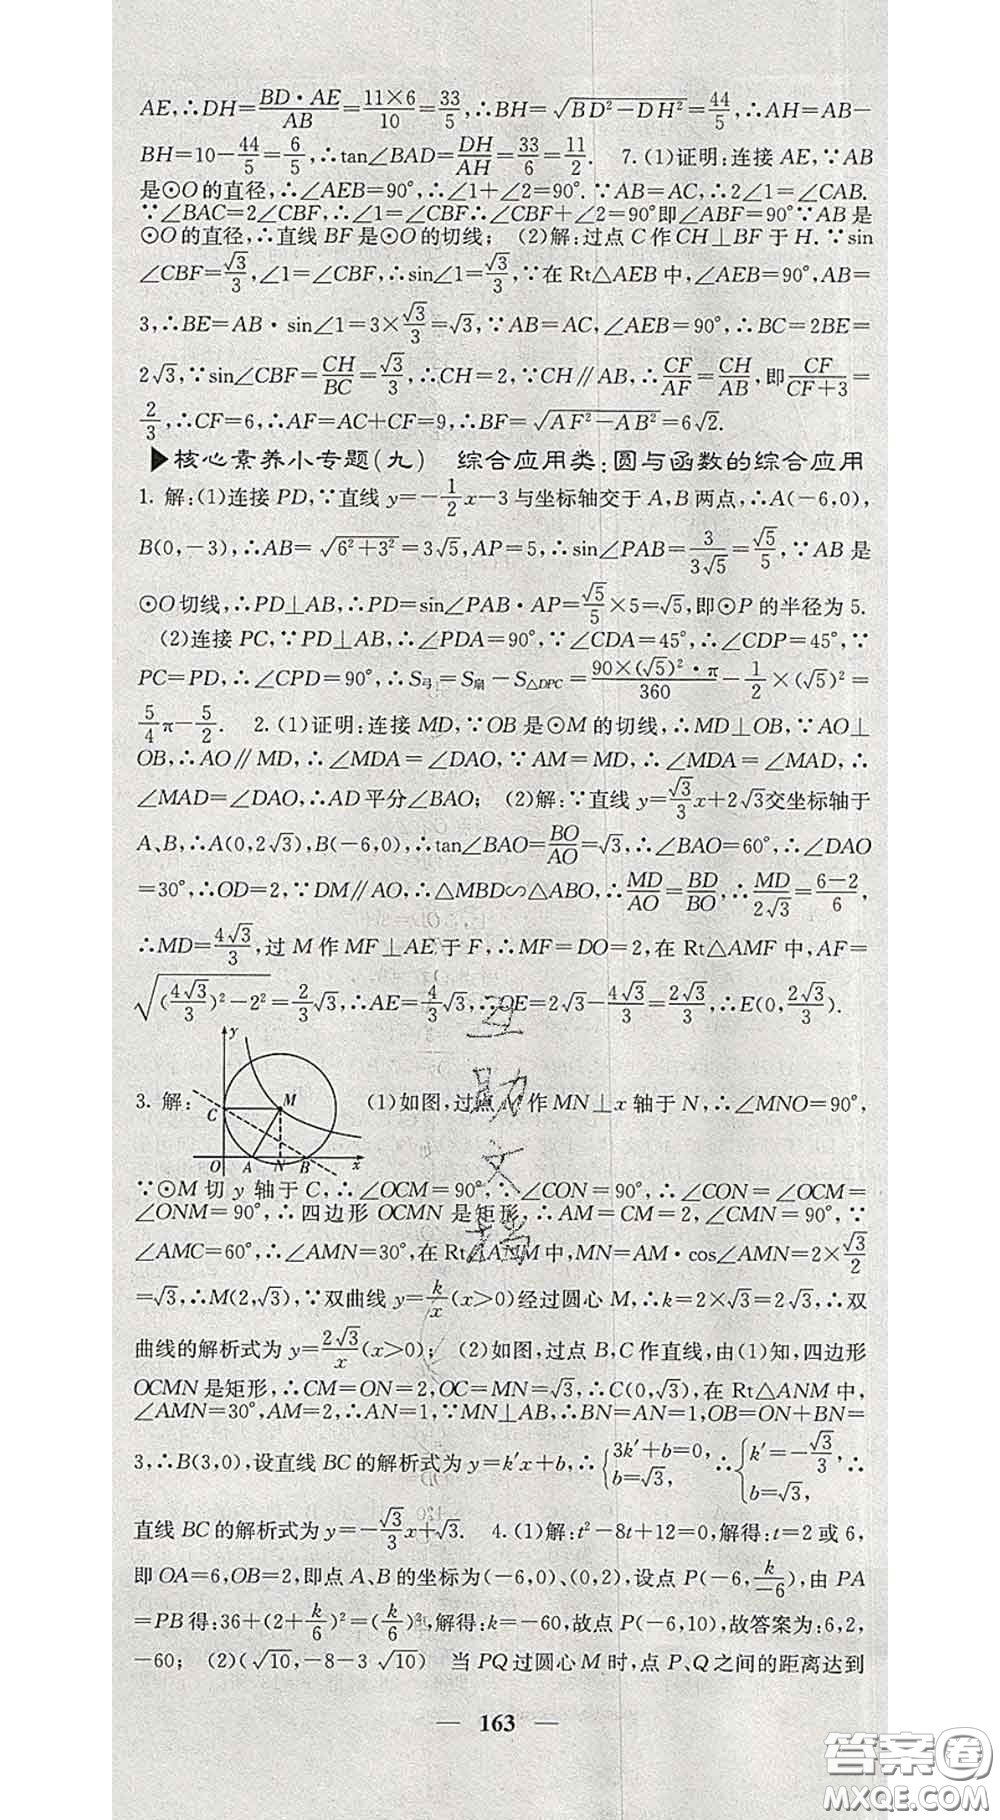 AE,∴DH=BD·AE/AB=11×6/10=33/5,∴BH=√(BD²-DH²)=44/5,∴AH=AB-
BH=10-44/5=6/5,∴tan∠BAD=DH/AH=33/6=11/2. 7.(1)证明:连接AE,∵AB
是⊙O的直径,∴∠AEB=90°,∴∠1+∠2=90°.∵AB=AC,∴2∠1=∠CAB.
∵∠BAC=2∠CBF,∴∠1=∠CBF∴∠CBF+∠2=90°即∠ABF=90°∵AB是
⊙O的直径,∴直线BF是⊙O的切线; (2)解:过点C作CH⊥BF于H.∵sin
∠CBF=√3/3,∠1=∠CBF,∴sin∠1=√3/3,∵在Rt△AEB中,∠AEB=90°,AB=
3,∴BE=AB·sin∠1=3×√3/3=√3,∵AB=AC,∠AEB=90°,∴BC=2BE=
2√3,∵sin∠CBF=CH/BC=√3/3,∴CH=2,∵CH∥AB,∴CF/AF=CH/AB,即CF/(CF+3)=
2/3,∴CF=6,∴AF=AC+CF=9,∴BF=√(AF²-AB²)=6√2.
▶核心素养小专题(九) 综合应用类:圆与函数的综合应用
1. 解:(1)连接PD,∵直线y=-1/2x-3与坐标轴交于A,B两点,∴A(-6,0),
B(0,-3),∴AB=√(6²+3²)=3√5,AP=5,∴sin∠PAB=3/(3√5)=√5/5,∵AB是
⊙O切线,∴PD⊥AB,∴PD=sin∠PAB·AP=√5/5×5=√5,即⊙P的半径为5.
(2)连接PC,∵PD⊥AB,∴∠PDA=90°,∵∠CDA=45°,∴∠CDP=45°,∵
PC=PD,∴∠CPD=90°,∴S弓=S扇-S△DPC=90×(√5)²·π/360-1/2×(√5)²=
5/4π-5/2. 2.(1)证明:连接MD,∵OB是⊙M的切线,∴MD⊥OB,∵AO⊥
OB,∴AO∥MD,∴∠MDA=∠DAO,∵AM=MD,∴∠MDA=∠MAD,∴
∠MAD=∠DAO,∴AD平分∠BAO; (2)解:∵直线y=√3/3x+2√3交坐标轴于
A、B,∴A(0,2√3),B(-6,0),∴tan∠BAO=BO/AO=√3,∴∠BAO=60°,∴∠DAO
=30°,∴OD=2,∵DM∥AO,∴△MBD∽△ABO,∴MD/AO=BD/BO,∴MD/(2√3)=(6-2)/6,
∴MD=4√3/3,过M作MF⊥AE于F,∴MF=DO=2,在Rt△AMF中,AF=
√((4√3/3)²-2²)=2/3√3,∴AE=4/3√3,∴OE=2√3-4√3/3=2√3/3,∴E(0,2√3/3).
3. 解: y C M O A N B x (1)如图,过点M作MN⊥x轴于N,∴∠MNO=90°,
∵⊙M切y轴于C,∴∠OCM=90°,∵∠CON=90°,∴∠CON=∠OCM=
∠ONM=90°,∴四边形OCMN是矩形,∴AM=CM=2,∠CMN=90°,∵
∠AMC=60°,∴∠AMN=30°,在Rt△ANM中,MN=AM·cos∠AMN=2×√3/2
=√3,∴M(2,√3),∵双曲线y=k/x(x>0)经过圆心M,∴k=2×√3=2√3,∴双
曲线的解析式为y=2√3/x(x>0); (2)如图,过点B,C作直线,由(1)知,四边形
OCMN是矩形,∴CM=ON=2,OC=MN=√3,∴C(0,√3),在Rt△ANM中,
∠AMN=30°,AM=2,∴AN=1,∵MN⊥AB,∴BN=AN=1,OB=ON+BN=
3,∴B(3,0),设直线BC的解析式为y=k′x+b,∴{3k′+b=0, b=√3, ∴{k′=-√3/3, b=√3, ∴
直线BC的解析式为y=-√3/3x+√3. 4.(1)解:t²-8t+12=0,解得:t=2或6,
即OA=6,OB=2,即点A、B的坐标为(-6,0)、(0,2),设点P(-6,k/-6),由PA
=PB得:36+(2+k/6)²=(k/6)²,解得:k=-60,故点P(-6,10),故答案为:6,2,
-60; (2)(√10,-8-3√10) 当PQ过圆心M时,点P、Q之间的距离达到
— 163 —
互助文瑞
答案圈
MXQE.COM